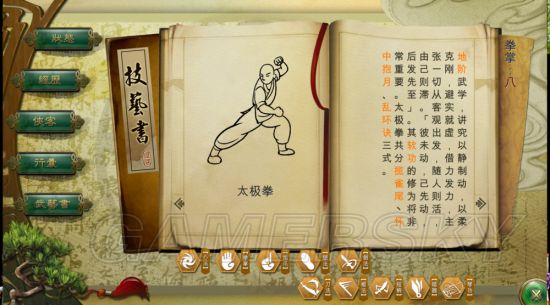 狀態
經歷
俠客
行囊
武藝書
技藝書
太极拳
拳掌·八
地阶武学，讲究以静制动，以柔
克刚，避实就虚，借力发力，主
张一切从客观出发，随人则活，
由己则滞。「彼未动，己先动，
后发先至」。其软功的修为将非
常重要。太极拳共分揽雀尾、怀
中抱月、乱环诀三式。
GAMERSKY